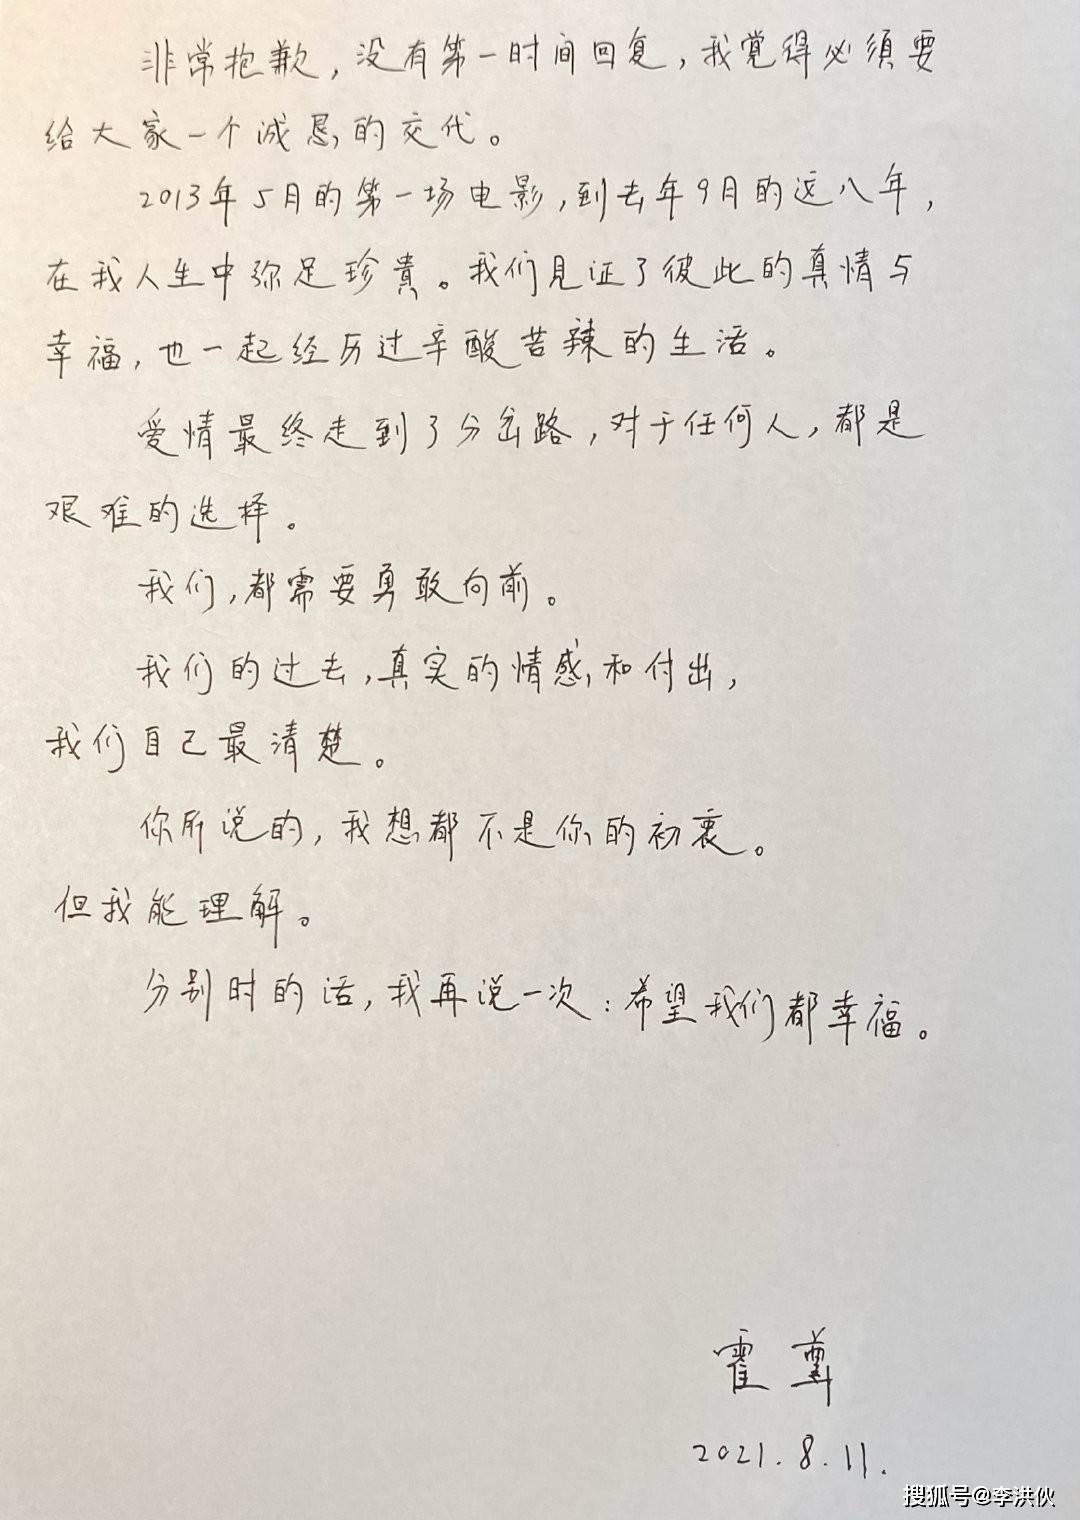 非常抱歉，没有第一时间回复，我觉得必须要
给大家一个诚恳的交代。
2013年5月的第一场电影，到去年9月的这八年，
在我人生中弥足珍貴。我们见证了彼此的真情与
幸福，也一起经历过辛酸苦辣的生活。
爱情最终走到了分岔路，对于任何人，都是
艰难的选择。
我们，都需要勇敢向前。
我们的过去，真实的情感和付出，
我们自己最清楚。
你所说的，我想都不是你的初衷。
但我能理解。
分别时的话，我再说一次：希望我们都幸福。
霍尊
2021.8.11.
搜狐号@李洪伙